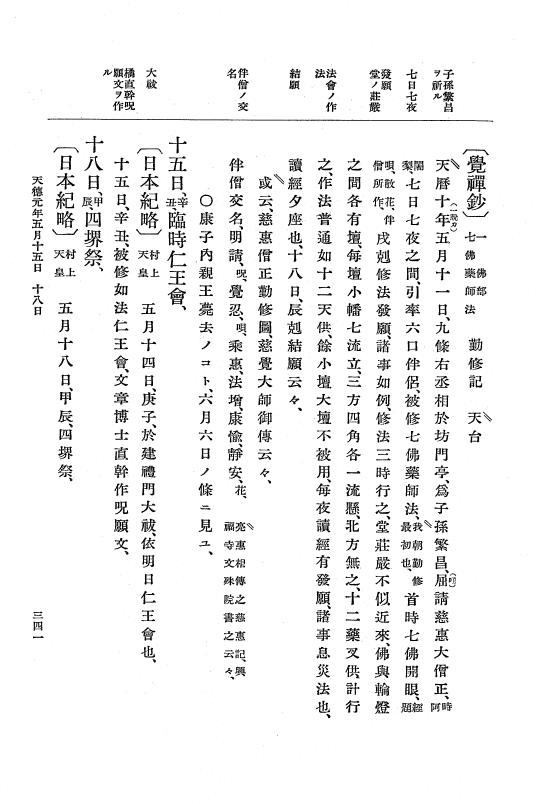 子孫繁昌
ヲ祈ル
七日七夜
發願
堂ノ莊嚴
法會ノ作
法
結願
伴僧ノ交
名
大祓
橘直幹呪
願文ヲ作
ル
〔覺禪鈔〕 一 佛部 七佛藥師法 勤修記 天台
天曆十年(一脱カ)五月十一日、九條右丞相於坊門亭、爲子孫繁昌、屈(叩)請慈惠大僧正、時阿
闍梨、七日七夜之間、引率六口伴侶、被修七佛藥師法、我朝勤修最初也、首時七佛開眼、經題
唄、散花、伴僧所作、戌剋修法發願、諸事如例、修法三時行之、堂莊嚴不似近來、佛與輪燈
之間各有壇、每壇小幡七流立、三方四角各一流懸、北方無之、十二藥叉供、計行
之、作法普通如十二天供、餘小壇大壇不被用、每夜讀經有發願、諸事息災法也、
讀經夕座也、十八日、辰剋結願云々、
或云、慈惠僧正勤修圖、慈覺大師御傳云々、
伴僧交名、明請、呪、覺忍、唄、乘惠、法增、康愉、靜安、花、 亮惠相傳之慈惠記、興福寺文殊院書之云々、
〇康子內親王薨去ノコト、六月六日ノ條ニ見ユ、
十五日、辛丑、臨時仁王會、
〔日本紀略〕 村上天皇 五月十四日、庚子、於建禮門大祓、依明日仁王會也、
十五日、辛丑、被修如法仁王會、文章博士直幹作呪願文、
十八日、甲辰、四堺祭、
〔日本紀略〕 村上天皇 五月十八日、甲辰、四堺祭、
天德元年五月十五日 十八日
三四一